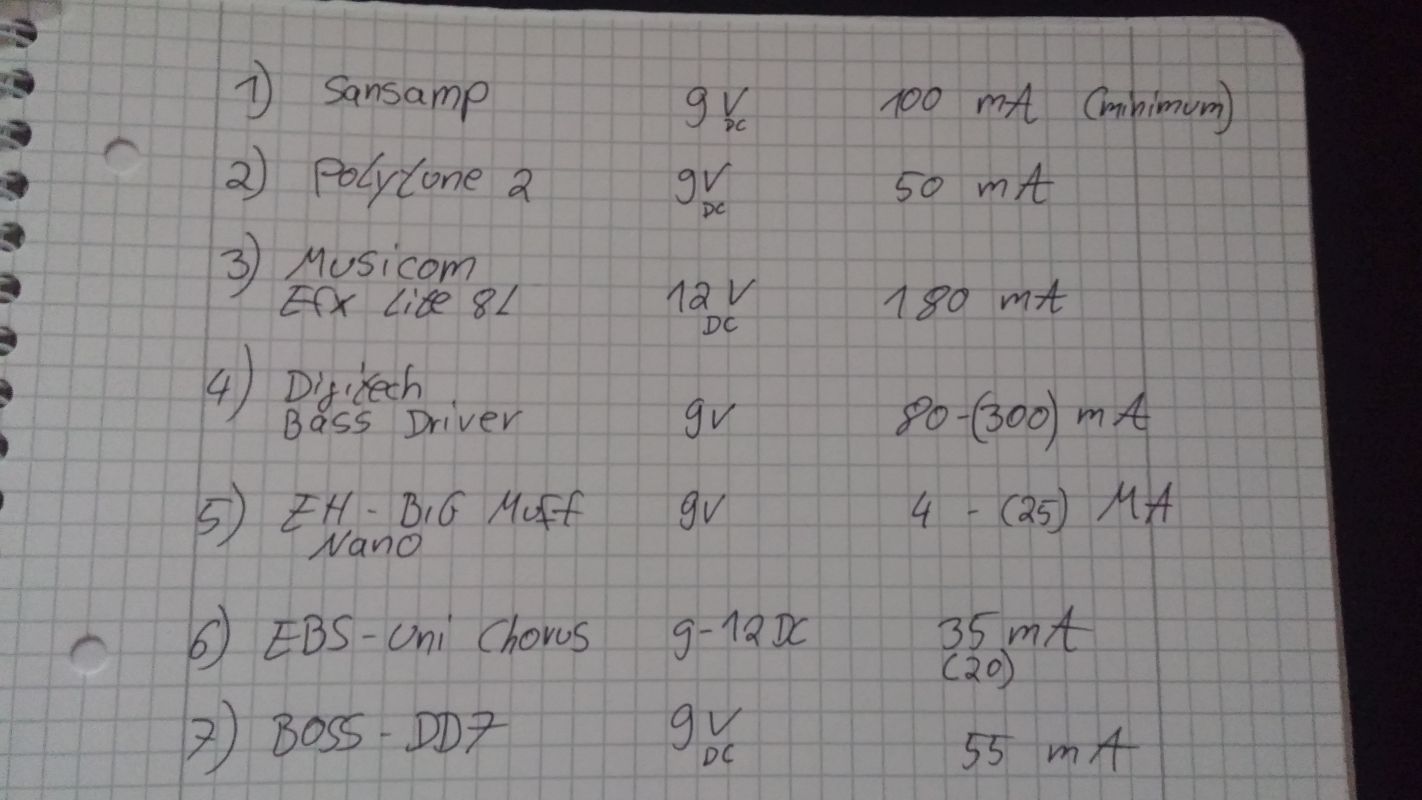 1) Sansamp 9V DC 100 mA (minimum)
2) Polytune 2 9V DC 50 mA
3) Musicom
Efx Lite 8L 12V DC 180 mA
4) Digitech
Bass Driver 9V 80-(300) mA
5) EH - BIG Muff 9V 4 - (25) MA
Nano
6) EBS - Uni Chorus 9-12 DC 35 mA
(20)
7) BOSS - DD7 9V DC 55 mA